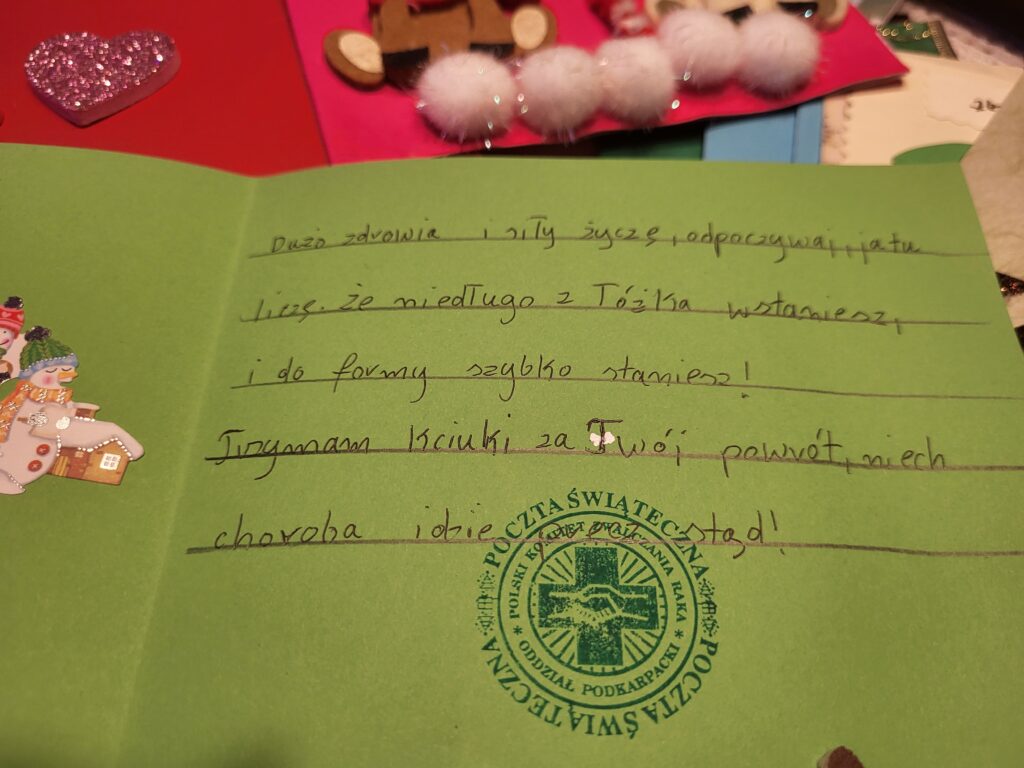 Dużo zdrowia i siły życzę, odpoczywaj, ja tu
liczę. że niedługo z łóżka wstaniesz,
i do formy szybko staniesz!
Trzymam kciuki za Twój powrót, niech
choroba idzie precz stąd!
POCZTA ŚWIĄTECZNA
POCZTA ŚWIĄTECZNA
POLSKI KOMITET ZWALCZANIA RAKA
* ODDZIAŁ PODKARPACKI *